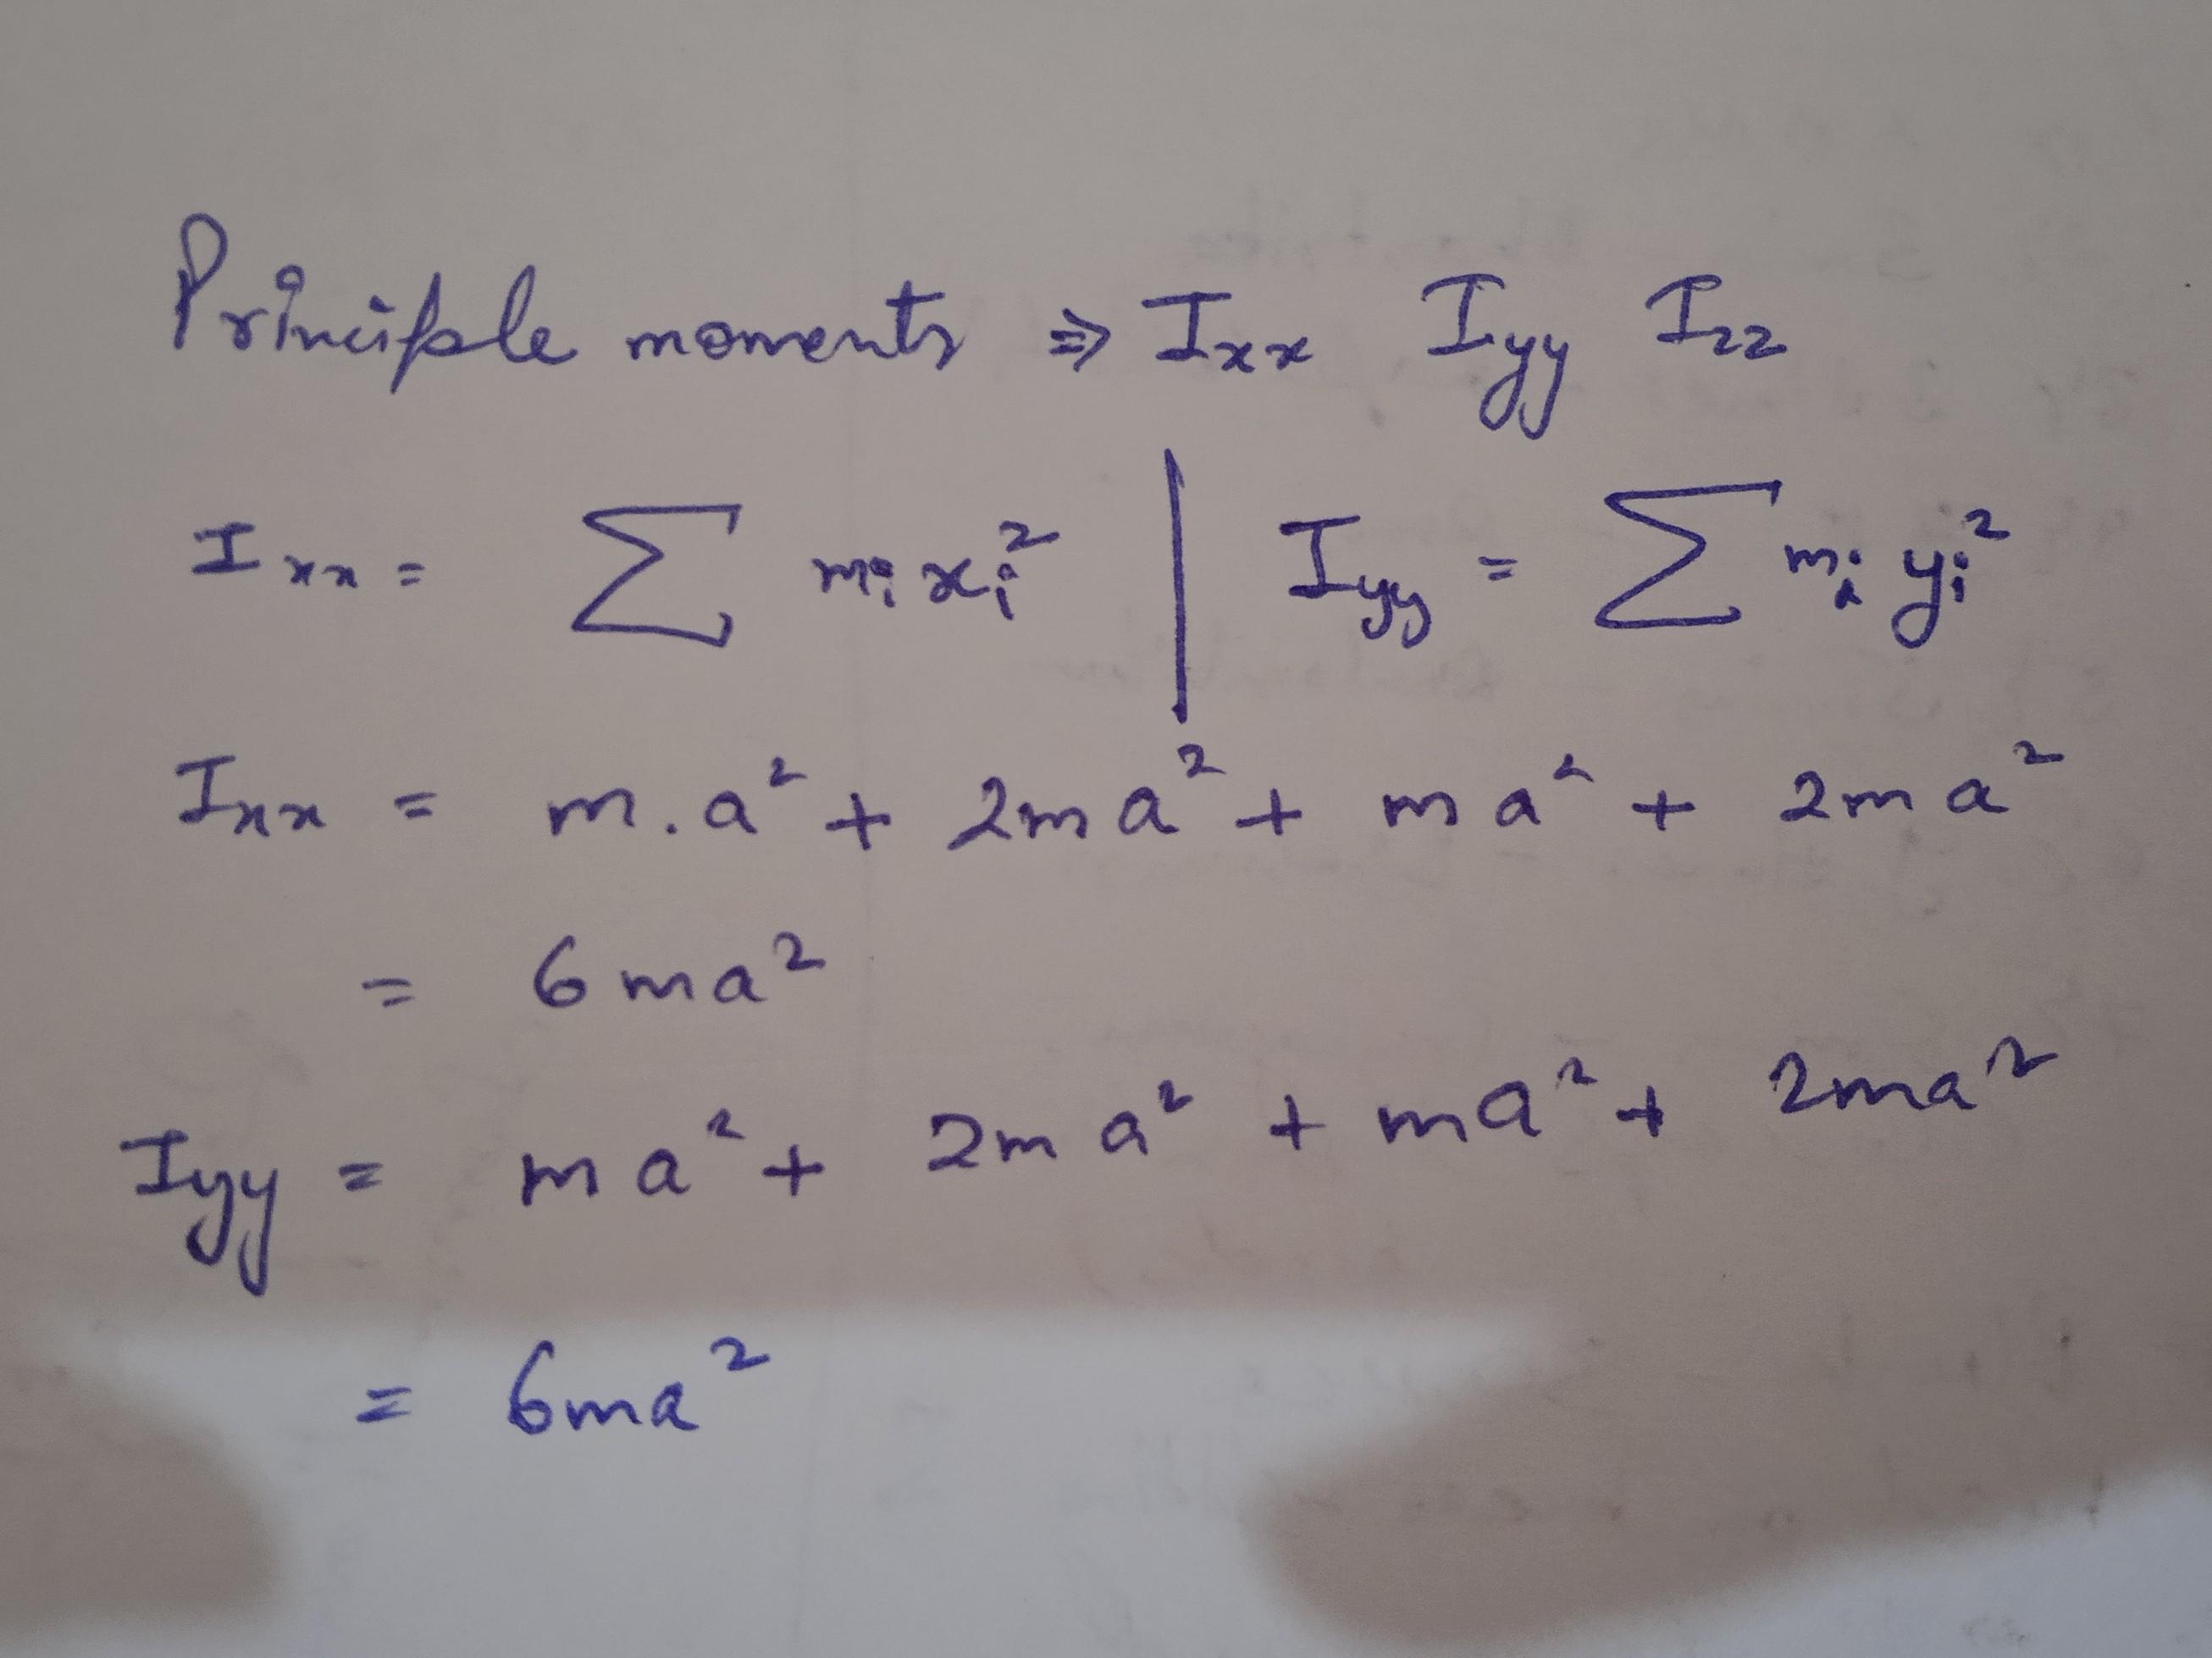 Principle moments ⇒ Ixx Iyy Izz
Ixx = ∑ mi xi² | Iyy = ∑ mi yi²
Ixx = m.a² + 2ma² + ma² + 2ma²
= 6ma²
Iyy = ma² + 2ma² + ma² + 2ma²
= 6ma²